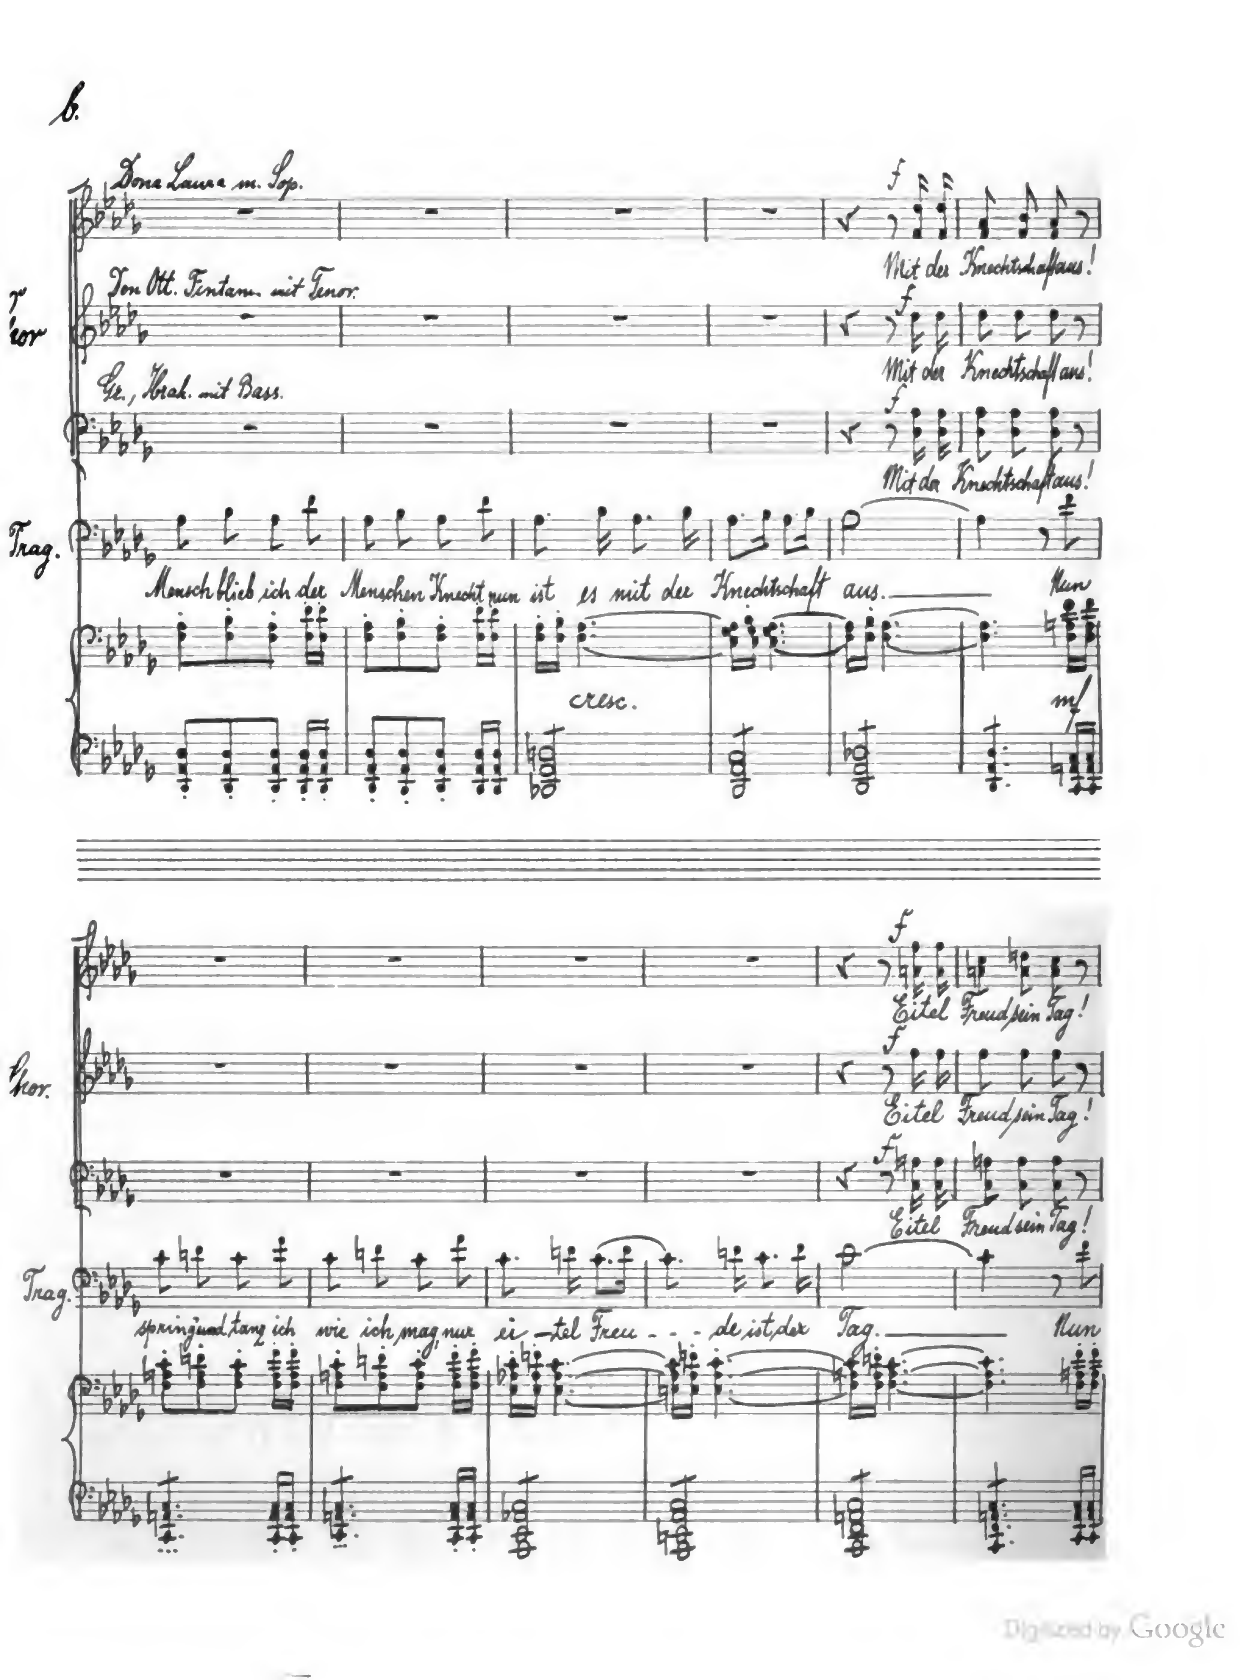 6.
Dona Laura m. Sop.
f
Mit der Knechtschaft aus!
Don Ott. Fintam. mit Tenor.
f
Mit der Knechtschaft aus!
Gr., Hrak. mit Bass.
f
Mit der Knechtschaft aus!
Trag.
Mensch blieb ich der Menschen Knecht nun ist es mit der Knechtschaft aus. Nun
cresc. mf
f
Eitel Freud sein Tag!
Chor.
f
Eitel Freud sein Tag!
f
Eitel Freud sein Tag!
Trag.
spring und tanz ich wie ich mag, nur ei - tel Freu - - - de ist der Tag. Nun
Digitized by Google